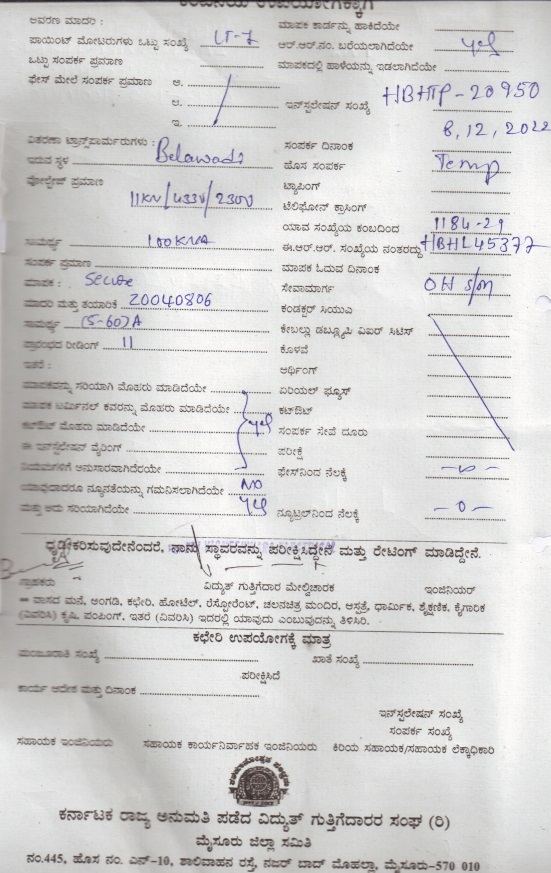 ಕಂಪನಿಯ ಉಪಯೋಗಕ್ಕಾಗಿ
ಆವರಣ ಮಾದರಿ :
ಪಾಯಿಂಟ್ ಮೋಟರುಗಳು ಒಟ್ಟು ಸಂಖ್ಯೆ LT-7
ಒಟ್ಟು ಸಂಪರ್ಕ ಪ್ರಮಾಣ
ಫೇಸ್ ಮೇಲೆ ಸಂಪರ್ಕ ಪ್ರಮಾಣ ಅ.
ಆ.
ಇ.
ವಿತರಣಾ ಟ್ರಾನ್ಸ್‌ಫಾರ್ಮರುಗಳು :
ಇರುವ ಸ್ಥಳ Belawadi
ವೋಲ್ಟೇಜ್ ಪ್ರಮಾಣ 11KV/433V/230V
ಸಾಮರ್ಥ್ಯ 100KVA
ಸಂಪರ್ಕ ಪ್ರಮಾಣ
ಮಾಪಕ : Secure
ಮಾದರಿ ಮತ್ತು ತಯಾರಿಕೆ 20040806
ಸಾಮರ್ಥ್ಯ (5-60)A
ಪ್ರಾರಂಭದ ರೀಡಿಂಗ್ 11
ಇತರೆ :
ಮಾಪಕವನ್ನು ಸರಿಯಾಗಿ ಮೊಹರು ಮಾಡಿದೆಯೇ
ಮಾಪಕ ಟರ್ಮಿನಲ್ ಕವರನ್ನು ಮೊಹರು ಮಾಡಿದೆಯೇ
ಕಟ್‌ಔಟ್ ಮೊಹರು ಮಾಡಿದೆಯೇ yes
ಈ ಇನ್ಸ್‌ಲೇಷನ್ ವೈರಿಂಗ್
ನಿಯಮಗಳಿಗೆ ಅನುಸಾರವಾಗಿದೆಯೇ
ಯಾವುದಾದರೂ ನ್ಯೂನತೆಯನ್ನು ಗಮನಿಸಲಾಗಿದೆಯೇ NO
ಮತ್ತು ಅದು ಸರಿಯಾಗಿದೆಯೇ yes
ಮಾಪಕ ಕಾರ್ಡನ್ನು ಹಾಕಿದೆಯೇ
ಆರ್.ಆರ್.ನಂ. ಬರೆಯಲಾಗಿದೆಯೇ yes
ಮಾಪಕದಲ್ಲಿ ಹಾಳೆಯನ್ನು ಇಡಲಾಗಿದೆಯೇ
ಇನ್‌ಸ್ಟಲೇಷನ್ ಸಂಖ್ಯೆ HBHTP-20950
ಸಂಪರ್ಕ ದಿನಾಂಕ 6,12,2022
ಹೊಸ ಸಂಪರ್ಕ Temp
ಟ್ಯಾಪಿಂಗ್
ಟೆಲಿಫೋನ್ ಕ್ರಾಸಿಂಗ್
ಯಾವ ಸಂಖ್ಯೆಯ ಕಂಬದಿಂದ 1184-29
ಈ.ಆರ್.ಆರ್. ಸಂಖ್ಯೆಯ ನಂತರದ್ದು HBHL45377
ಮಾಪಕ ಓದುವ ದಿನಾಂಕ
ಸೇವಾಮಾರ್ಗ OH s/m
ಕಂಡಕ್ಟರ್ ಸಿಯುಎ
ಕೇಬಲ್ಲು ಡಬ್ಲ್ಯೂಪಿ ವಿಐರ್ ಸಿಟಿಸ್
ಕೊಳವೆ
ಅರ್ಥಿಂಗ್
ಏರಿಯಲ್ ಫ್ಯೂಸ್
ಕಟ್‌ಔಟ್
ಸಂಪರ್ಕ ಸೇವೆ ದೂರು
ಪರೀಕ್ಷೆ
ಫೇಸ್‌ನಿಂದ ನೆಲಕ್ಕೆ
ನ್ಯೂಟ್ರಲ್‌ನಿಂದ ನೆಲಕ್ಕೆ -0-
ಧೃಢೀಕರಿಸುವುದೇನೆಂದರೆ, ನಾನು ಸ್ಥಾವರವನ್ನು ಪರೀಕ್ಷಿಸಿದ್ದೇನೆ ಮತ್ತು ರೇಟಿಂಗ್ ಮಾಡಿದ್ದೇನೆ.
ಗ್ರಾಹಕರು ವಿದ್ಯುತ್ ಗುತ್ತಿಗೆದಾರ ಮೇಲ್ವಿಚಾರಕ ಇಂಜಿನಿಯರ್
** ವಾಸದ ಮನೆ, ಅಂಗಡಿ, ಕಛೇರಿ, ಹೋಟೆಲ್, ರೆಸ್ಟೋರೆಂಟ್, ಚಲನಚಿತ್ರ ಮಂದಿರ, ಆಸ್ಪತ್ರೆ, ಧಾರ್ಮಿಕ, ಶೈಕ್ಷಣಿಕ, ಕೈಗಾರಿಕ
(ವಿವರಿಸಿ) ಕೃಷಿ, ಪಂಪಿಂಗ್, ಇತರೆ (ವಿವರಿಸಿ) ಇದರಲ್ಲಿ ಯಾವುದು ಎಂಬುವುದನ್ನು ತಿಳಿಸಿರಿ.
ಕಛೇರಿ ಉಪಯೋಗಕ್ಕೆ ಮಾತ್ರ
ಮಂಜೂರಾತಿ ಸಂಖ್ಯೆ ಖಾತೆ ಸಂಖ್ಯೆ
ಪರೀಕ್ಷಿಸಿದೆ
ಕಾರ್ಯ ಆದೇಶ ಮತ್ತು ದಿನಾಂಕ
ಇನ್‌ಸ್ಟಲೇಷನ್ ಸಂಖ್ಯೆ
ಸಂಪರ್ಕ ಸಂಖ್ಯೆ
ಸಹಾಯಕ ಇಂಜಿನಿಯರು ಸಹಾಯಕ ಕಾರ್ಯನಿರ್ವಾಹಕ ಇಂಜಿನಿಯರು ಕಿರಿಯ ಸಹಾಯಕ/ಸಹಾಯಕ ಲೆಕ್ಕಾಧಿಕಾರಿ
ಕರ್ನಾಟಕ ರಾಜ್ಯ ಅನುಮತಿ ಪಡೆದ ವಿದ್ಯುತ್ ಗುತ್ತಿಗೆದಾರರ ಸಂಘ (ರಿ)
ಮೈಸೂರು ಜಿಲ್ಲಾ ಸಮಿತಿ
ನಂ.445, ಹೊಸ ನಂ. ಎನ್-10, ಶಾಲಿವಾಹನ ರಸ್ತೆ, ನಜರ್ ಬಾದ್ ಮೊಹಲ್ಲಾ, ಮೈಸೂರು-570 010